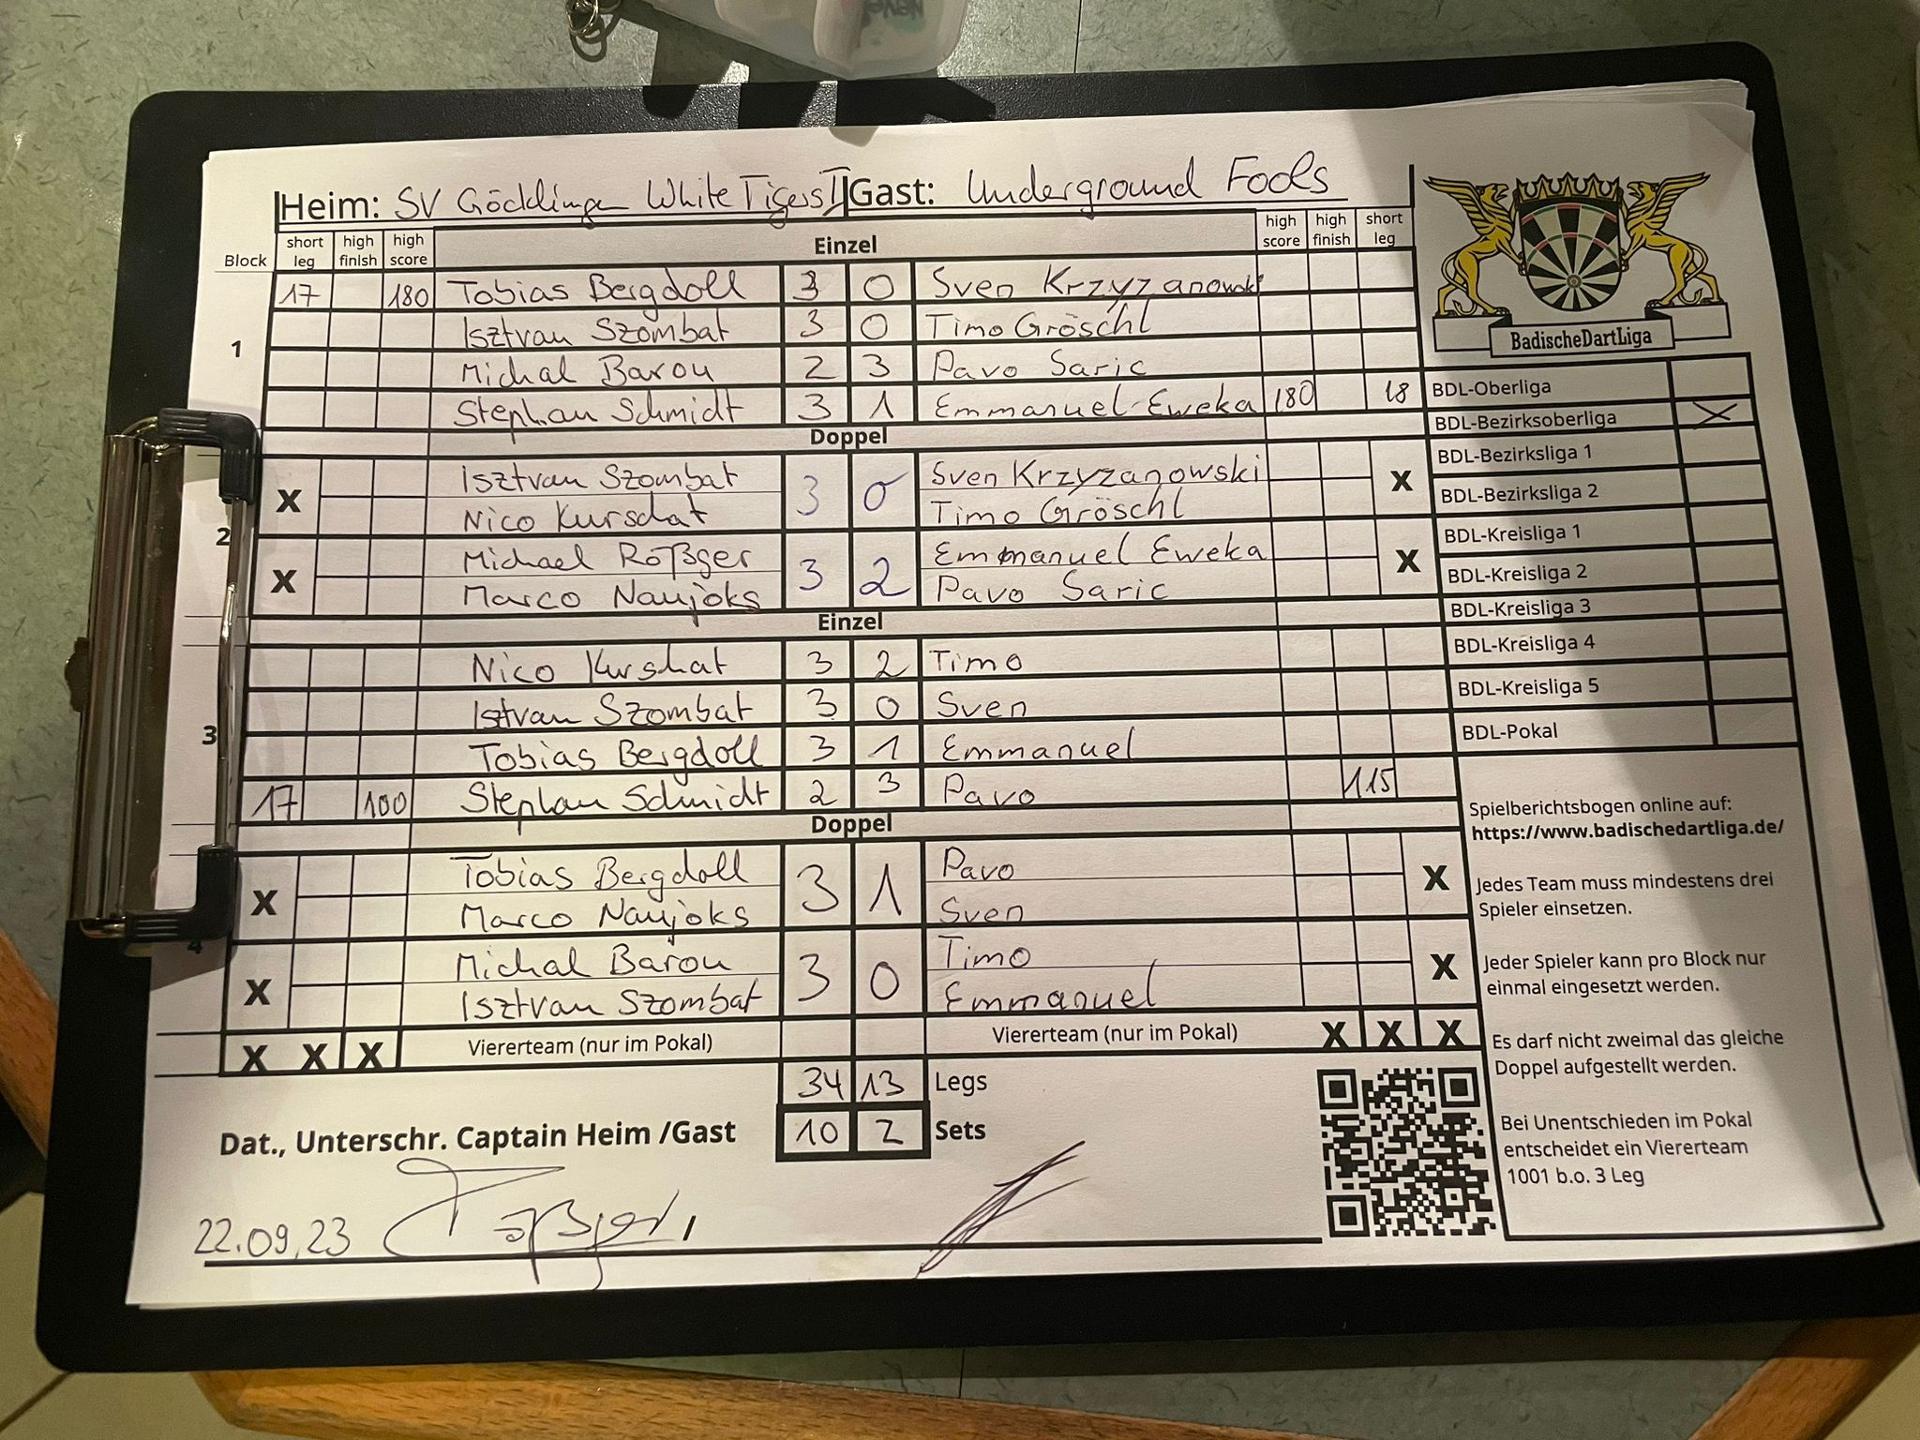 Heim: SV Göcklingen White Tigers I Gast: Underground Fools
Block short leg high finish high score Einzel high score high finish short leg
17 180 Tobias Bergdoll 3 0 Sven Krzyzanowski
1 Isztvan Szombat 3 0 Timo Gröschl
Michal Barou 2 3 Pavo Saric
Stephan Schmidt 3 1 Emmanuel Eweka 180 18
Doppel
X Isztvan Szombat 3 0 Sven Krzyzanowski X
Nico Kurschat Timo Gröschl
2
X Michael Rößger 3 2 Emmanuel Eweka X
Marco Naujoks Pavo Saric
Einzel
Nico Kurshat 3 2 Timo
Istvan Szombat 3 0 Sven
3 Tobias Bergdoll 3 1 Emmanuel
17 100 Stephan Schmidt 2 3 Pavo 115
Doppel
X Tobias Bergdoll 3 1 Pavo X
Marco Naujoks Sven
4
X Michal Barou 3 0 Timo X
Isztvan Szombat Emmanuel
X X X Viererteam (nur im Pokal) Viererteam (nur im Pokal) X X X
34 13 Legs
Dat., Unterschr. Captain Heim /Gast 10 2 Sets
22.09.23
BadischeDartLiga
BDL-Oberliga
BDL-Bezirksoberliga X
BDL-Bezirksliga 1
BDL-Bezirksliga 2
BDL-Kreisliga 1
BDL-Kreisliga 2
BDL-Kreisliga 3
BDL-Kreisliga 4
BDL-Kreisliga 5
BDL-Pokal
Spielberichtsbogen online auf:
https://www.badischedartliga.de/
Jedes Team muss mindestens drei
Spieler einsetzen.
Jeder Spieler kann pro Block nur
einmal eingesetzt werden.
Es darf nicht zweimal das gleiche
Doppel aufgestellt werden.
Bei Unentschieden im Pokal
entscheidet ein Viererteam
1001 b.o. 3 Leg